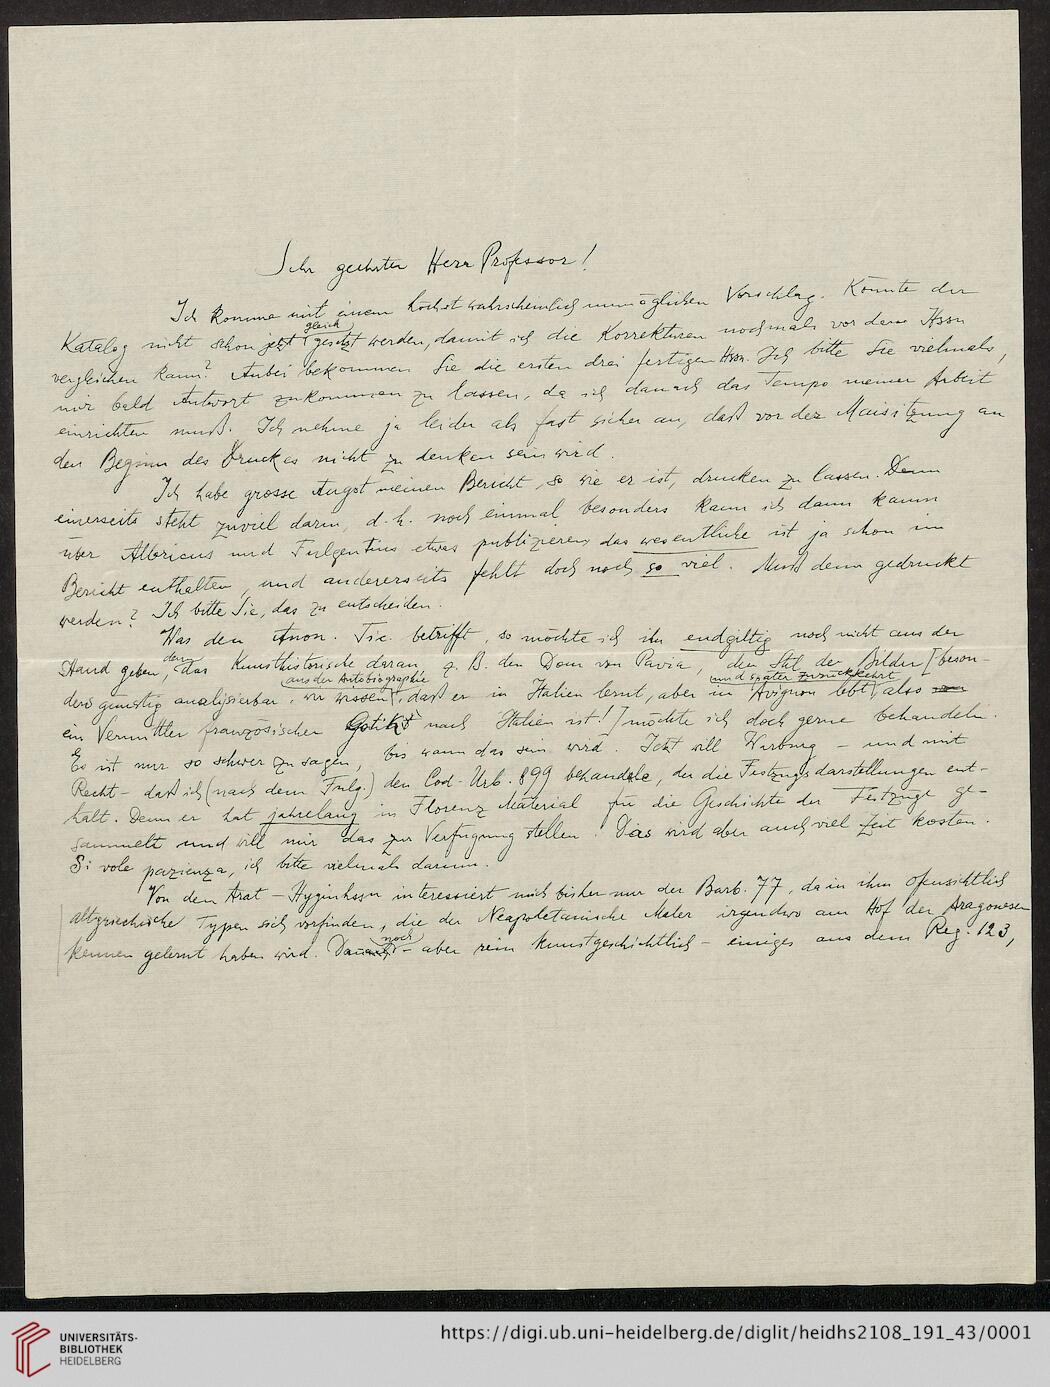 Sehr geehrter Herr Professor!
Ich komme mit einem höchst wahrscheinlich unmöglichen Vorschlag. Könnte der
Katalog nicht schon jetzt gleich gesetzt werden, damit ich die Korrekturen nochmals vor dem Hssn
vergleichen kann? Anbei bekommen Sie die ersten drei fertigen Hssn. Ich bitte Sie vielmals,
mir bald Antwort zukommen zu lassen, da ich danach das Tempo meiner Arbeit
einrichten muß. Ich nehme ja leider als fast sicher an, daß vor der Maisitzung an
den Beginn des Druckes nicht zu denken sein wird.
Ich habe grosse Angst meinen Bericht, so wie er ist, drucken zu lassen. Denn
einerseits steht zuviel darin, d. h. noch einmal besonders kann ich dann kaum
über Albricus und Fulgentius etwas publizieren, das wesentliche ist ja schon im
Bericht enthalten, und andererseits fehlt doch noch so viel. Muß denn gedruckt
werden? Ich bitte Sie, das zu entscheiden.
Was den Anon. Tic. betrifft, so möchte ich ihn endgiltig noch nicht aus der
Hand geben, denn das Kunsthistorische daran, z. B. den Dom von Pavia, den Stil der Bilder [beson-
ders günstig analysierbar, wir wissen aus der Autobiographie, daß er in Italien lernt, aber in Avignon lebt und später zurückkehrt, also
ein Vermittler französischer Gotik nach Italien ist!] möchte ich doch gerne behandeln.
Es ist nur so schwer zu sagen, bis wann das sein wird. Jetzt will Warburg – und mit
Recht – daß ich (nach dem Fulg.) den Cod. Urb. 899 behandle, der die Festzugsdarstellungen ent-
hält. Denn er hat jahrelang in Florenz Material für die Geschichte der Festzüge ge-
sammelt und will mir das zur Verfügung stellen. Das wird aber auch viel Zeit kosten.
Si vole pazienza, ich bitte vielmals darum.
Von den Arat – Hyginhssn interessiert mich bisher nur der Barb. 77, da in ihm offensichtlich
altgriechische Typen sich vorfinden, die der Neapoletanische Maler irgendwo am Hof der Aragonesen
kennen gelernt haben wird. Dann noch – aber rein kunstgeschichtlich – einiges aus dem Reg. 123,
UNIVERSITÄTS-
BIBLIOTHEK
HEIDELBERG
https://digi.ub.uni-heidelberg.de/diglit/heidhs2108_191_43/0001